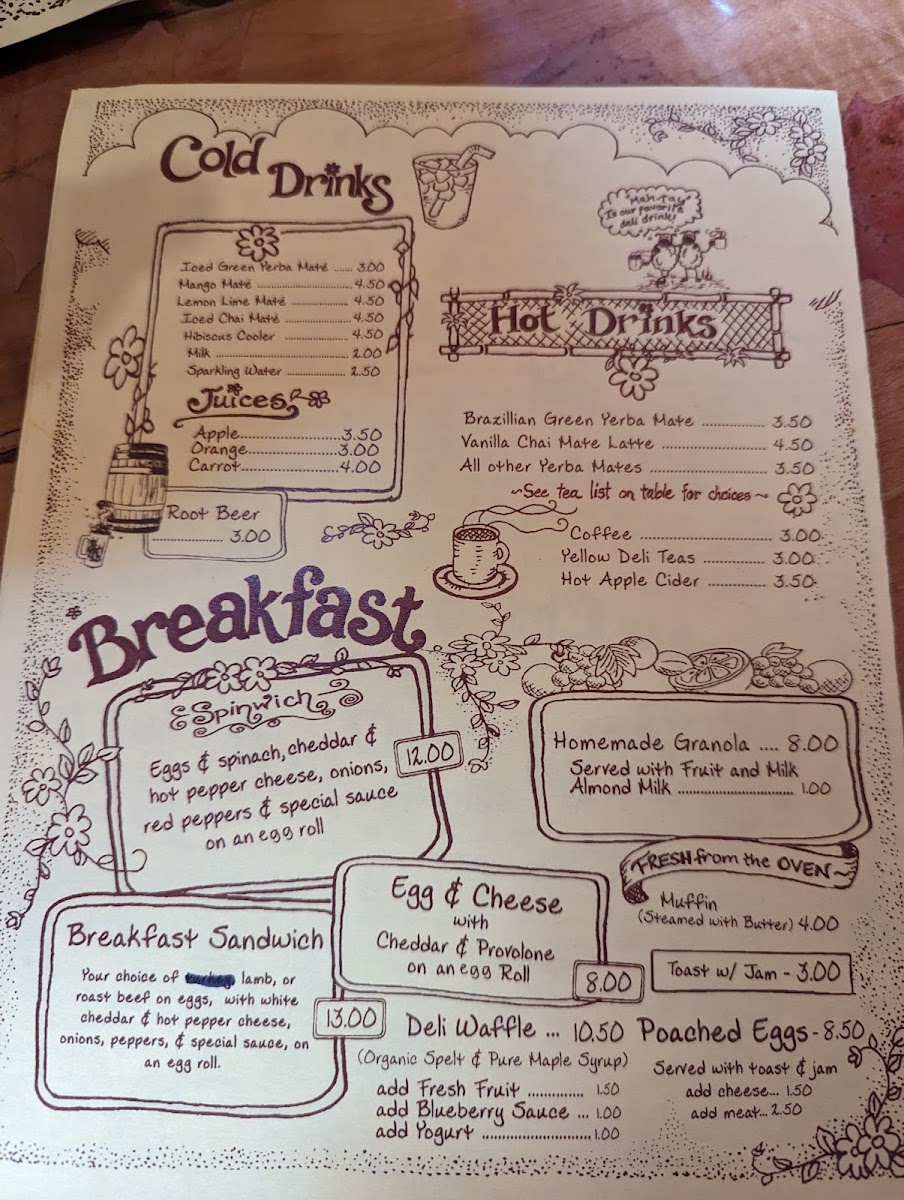 Cold Drinks
Iced Green Yerba Maté ...... 3.00
Mango Maté ........................ 4.50
Lemon Lime Maté ................ 4.50
Iced Chai Maté .................... 4.50
Hibiscus Cooler .................. 4.50
Milk ........................................ 2.00
Sparkling Water .................. 2.50
Juices
Apple......................3.50
Orange....................3.00
Carrot.....................4.00
Root Beer
.................. 3.00
"Mah-tay"
Is our favorite
deli drink!
Hot Drinks
Brazillian Green Yerba Mate .............. 3.50
Vanilla Chai Mate Latte ..................... 4.50
All other Yerba Mates ....................... 3.50
~See tea list on table for choices~
Coffee ........................... 3.00
Yellow Deli Teas ............ 3.00
Hot Apple Cider ............. 3.50
Breakfast
Spinwich
Eggs & spinach, cheddar &
hot pepper cheese, onions,
red peppers & special sauce
on an egg roll
12.00
Homemade Granola .... 8.00
Served with Fruit and Milk
Almond Milk ............................ 1.00
FRESH from the OVEN~
Muffin
(Steamed with Butter) 4.00
Toast w/ Jam - 3.00
Egg & Cheese
with
Cheddar & Provolone
on an egg Roll
8.00
Breakfast Sandwich
Your choice of turkey, lamb, or
roast beef on eggs, with white
cheddar & hot pepper cheese,
onions, peppers, & special sauce, on
an egg roll.
13.00
Deli Waffle ... 10.50
(Organic Spelt & Pure Maple Syrup)
add Fresh Fruit .............. 1.50
add Blueberry Sauce ... 1.00
add Yogurt ............................ 1.00
Poached Eggs - 8.50
Served with toast & jam
add cheese... 1.50
add meat... 2.50